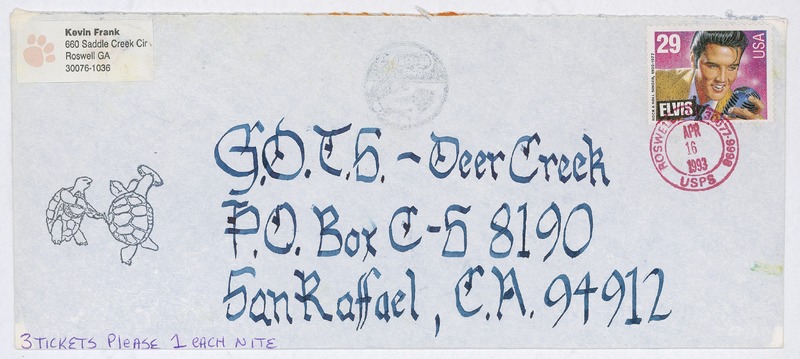 Kevin Frank
660 Saddle Creek Cir
Roswell GA
30076-1036
29
USA
ROCK & ROLL SINGER, 1935-1977
ELVIS
30077-9998
APR
16
1993
USPS
G.D.T.S. - Deer Creek
P.O. Box C-S 8190
San Raffael, C.A. 94912
3 TICKETS PleASE 1 eACH NITE